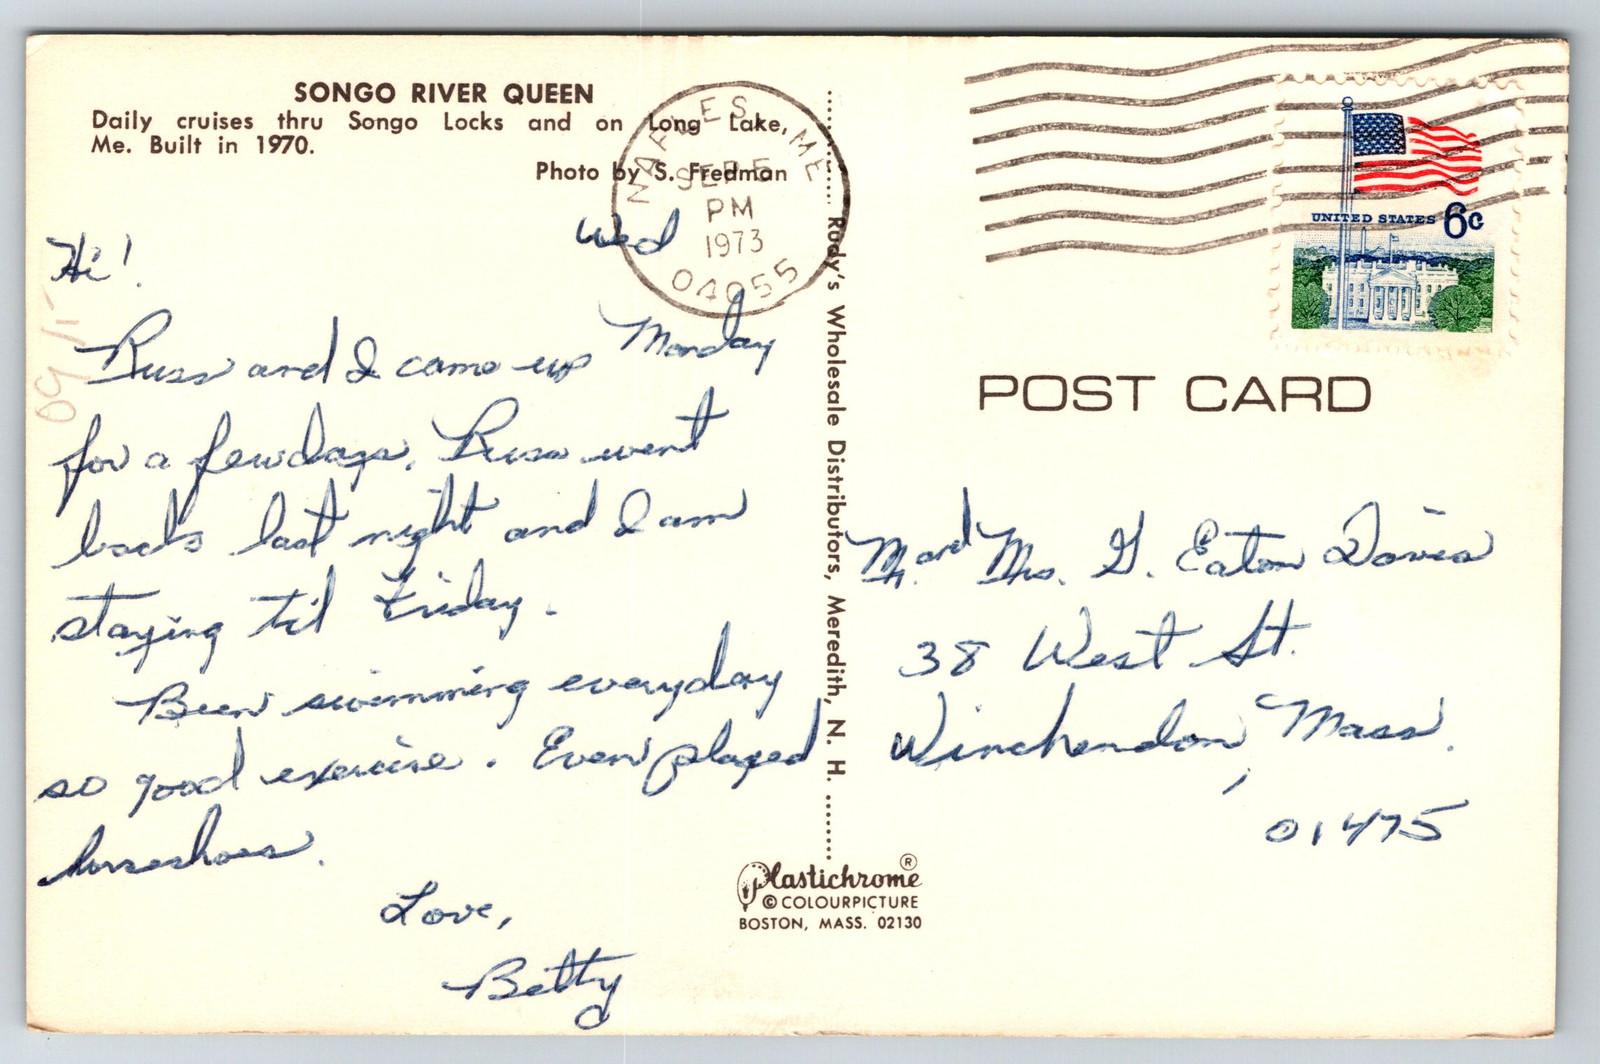 SONGO RIVER QUEEN
Daily cruises thru Songo Locks and on Long Lake,
Me. Built in 1970.
Photo by S. Fredman
NAPLES, ME
SEP 5
PM
1973
04055
UNITED STATES 6c
POST CARD
Wed
Hi!
Russ and I came up Monday
for a few days. Russ went
back last night and I am
staying til Friday.
Been swimming everyday
so good exercise. Even played
horseshoes.
Love,
Betty
Rudy's Wholesale Distributors, Meredith, N. H.
Mr. and Mrs. G. Eaton Davis
38 West St.
Winchendon, Mass.
01475
Plastichrome ®
© COLOURPICTURE
BOSTON, MASS. 02130